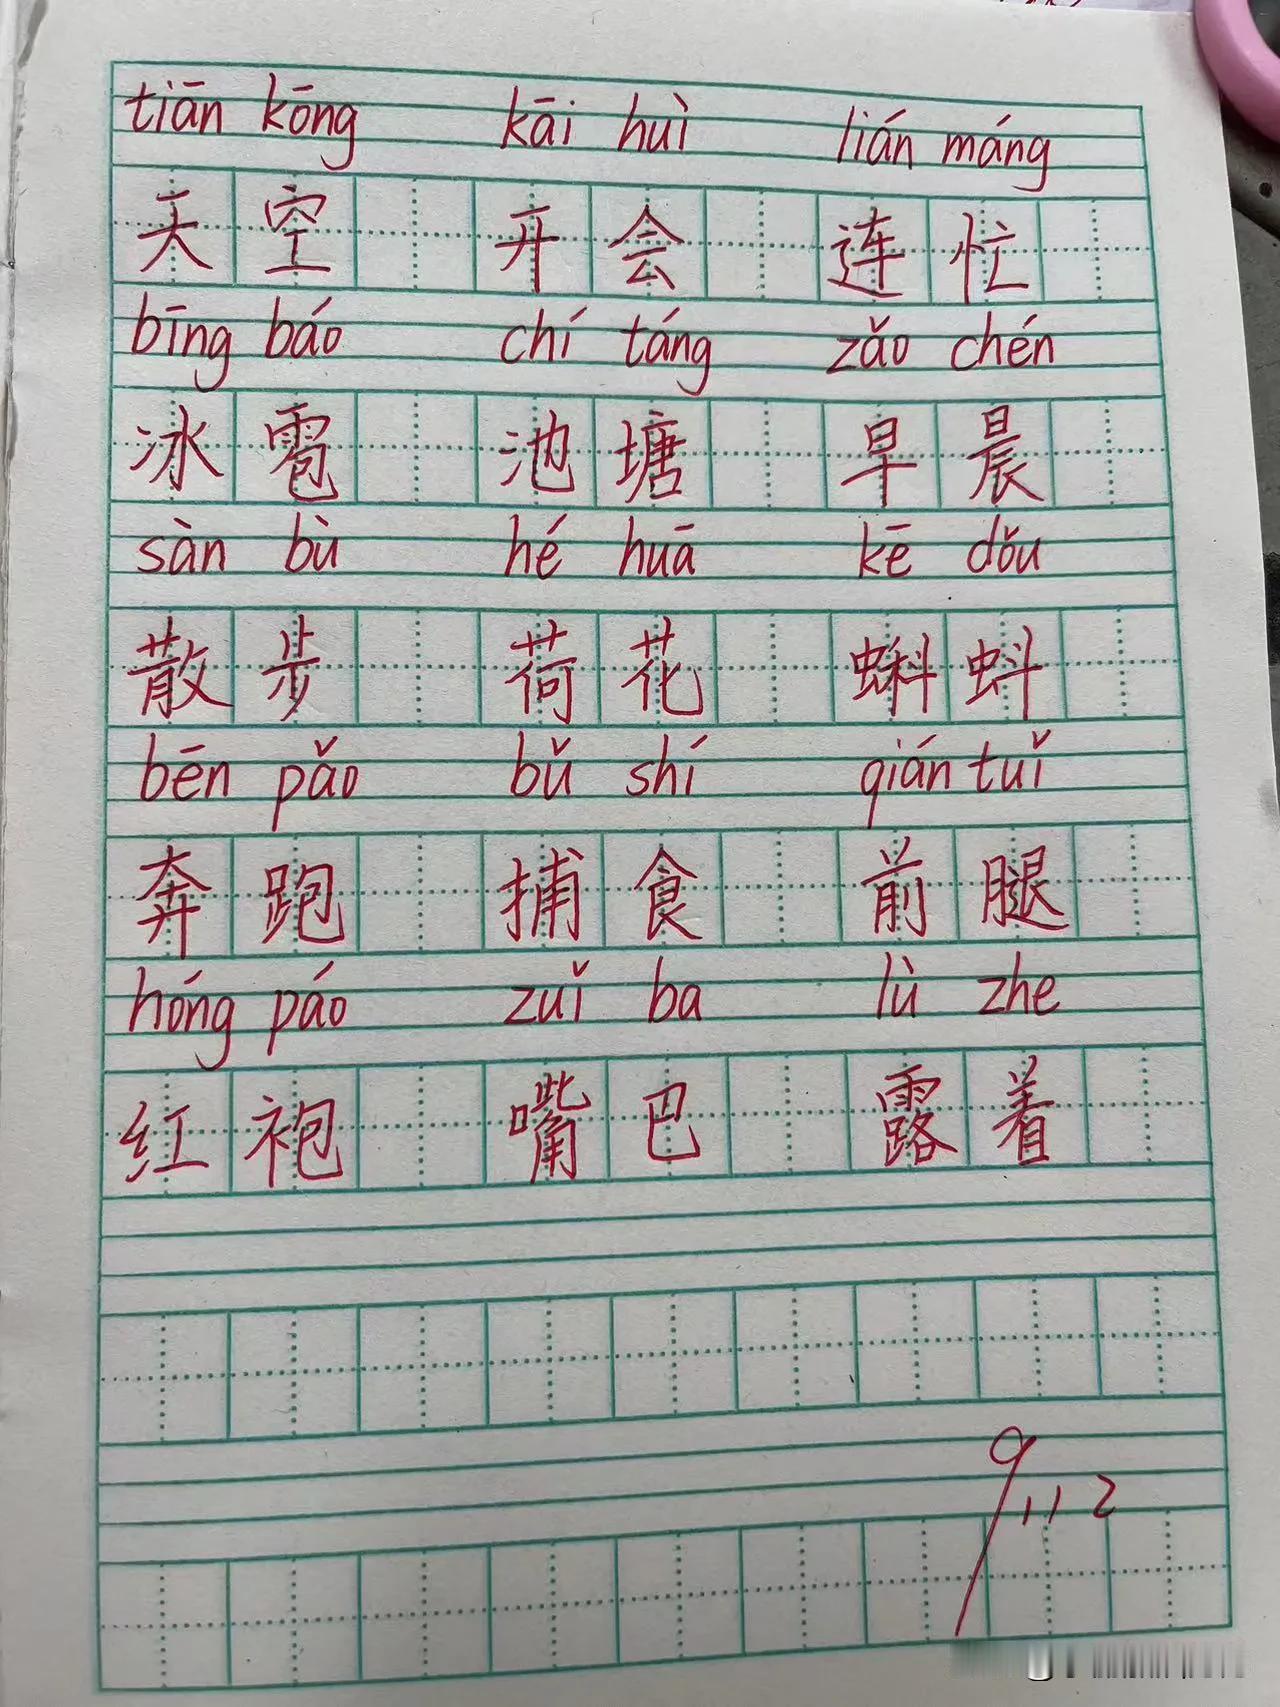 tiān kōng kāi huì lián máng
天空 开会 连忙
bīng báo chí táng zǎo chén
冰雹 池塘 早晨
sàn bù hé huā kē dǒu
散步 荷花 蝌蚪
bēn pǎo bǔ shí qián tuǐ
奔跑 捕食 前腿
hóng páo zuǐ ba lù zhe
红袍 嘴巴 露着